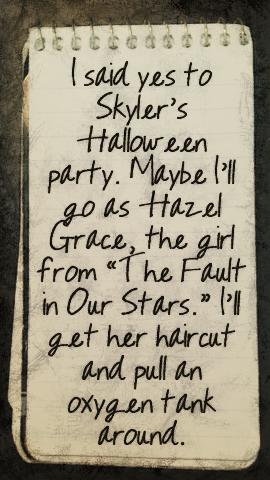 I said yes to
Skyler's
Halloween
party. Maybe I'll
go as Hazel
Grace, the girl
from “The Fault
in Our Stars.” I'll
get her haircut
and pull an
oxygen tank
around.